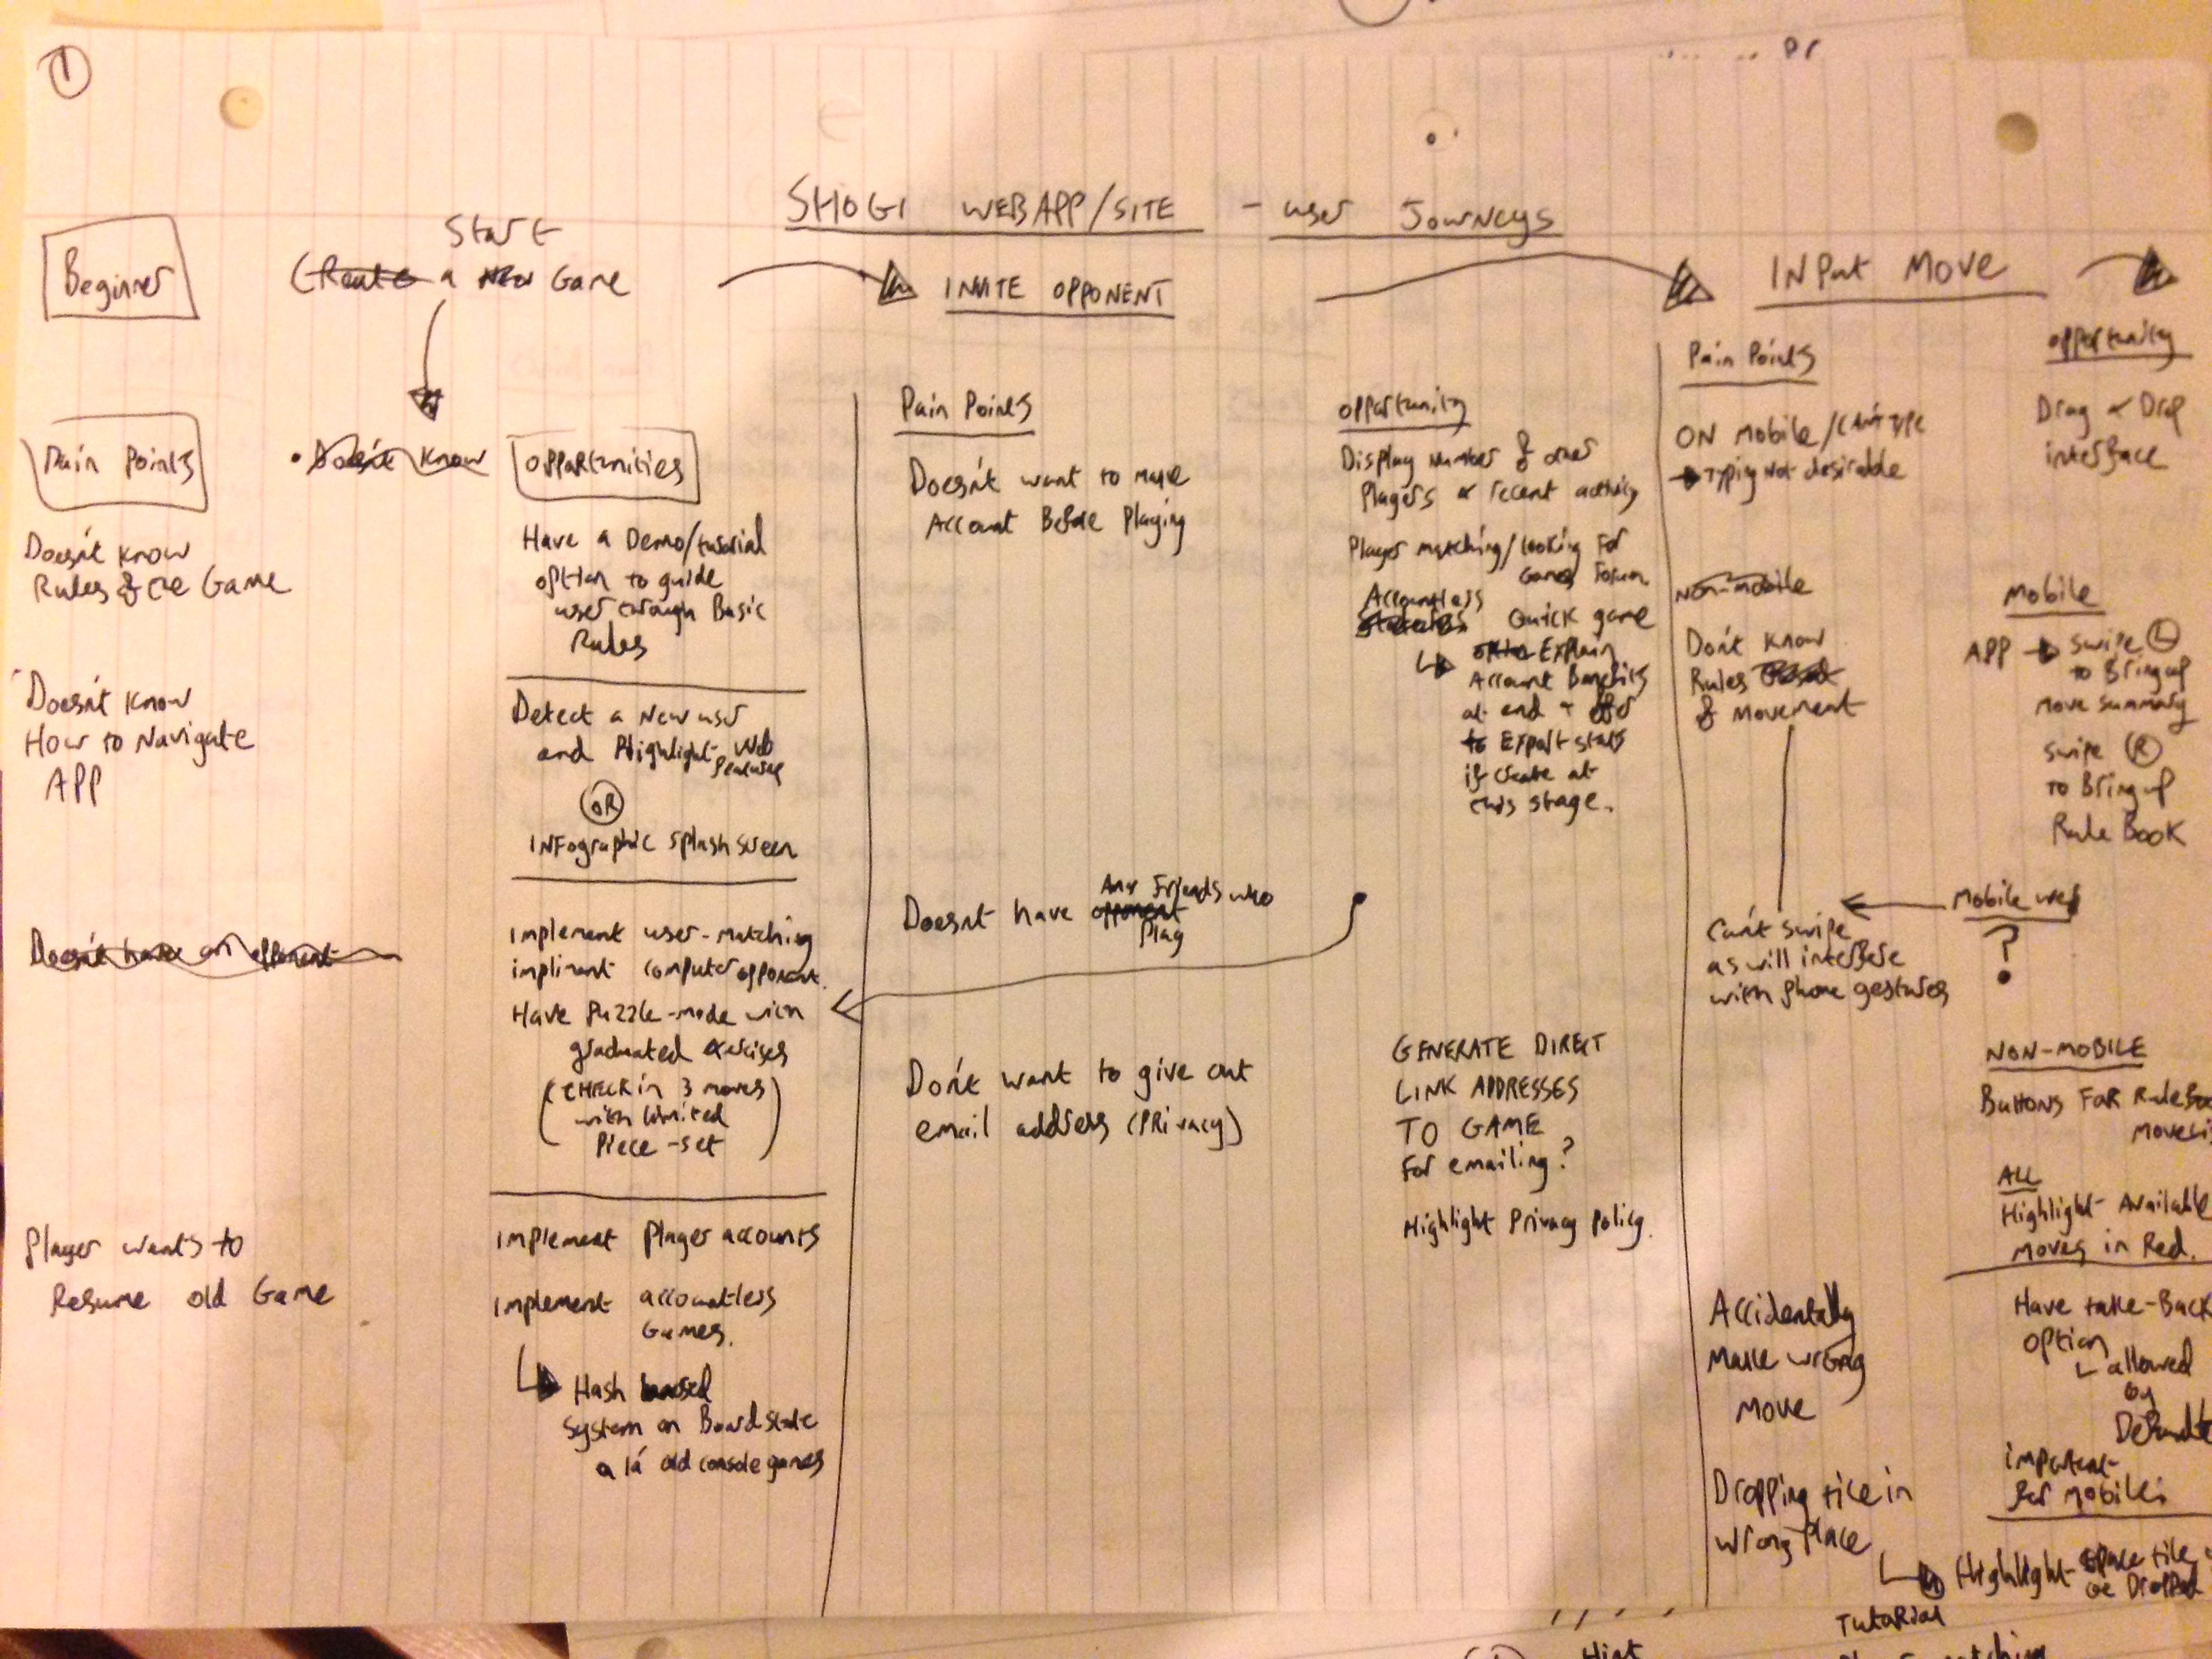 1
SHOGI WEBAPP/SITE - user Journeys
Beginner
Start
Create a New Game
INVITE OPPONENT
INPut MOVE
Pain Points
Doesn't know
Opportunities
Doesn't know
Rules of the Game
Have a Demo/tutorial
option to guide
user through Basic
Rules
Doesn't know
How to Navigate
APP
Detect a New user
and Highlight Web
OR
INFographic splash screen
Doesn't have an opponent
Implement user-matching
impliment computer opponent.
Have puzzle-mode with
graduated exercises
(CHECK in 3 moves
with limited
Piece-set)
Player wants to
Resume old Game
Implement Player accounts
Implement accountless
Games.
Hash based
System on Board state
a lá old console games
Pain Points
Doesn't want to make
Account Before Playing
Doesn't have opponent Any Friends who
Play
Don't want to give out
email address (PRivacy)
opportunity
Display number of other
Players & recent activity
Player matching/Looking For
Games Forum
Accountless
Quick game
Explain
Account Benefits
at end + offer
to Export stats
if create at
this stage.
GENERATE DIRECT
LINK ADDRESSES
TO GAME
for emailing?
Highlight Privacy Policy.
Pain Points
ON Mobile/CAN'T TYPE
Typing Not desirable
Non-mobile
Don't know
Rules
of Movement
Can't swipe
as will interfere
with phone gestures
Accidentally
Make wrong
Move
Dropping tile in
wrong Place
opportunity
Drag & Drop
interface
Mobile
APP swipe L
to Bring up
move summary
swipe R
to Bring up
Rule Book
Mobile web
?
NON-MOBILE
Buttons FOR
ALL
Highlight Available
moves in Red.
Have take-Back
option
allowed
by
Default
important
for mobile
Highlight space tile
be Dropped
Tutorial
Hint